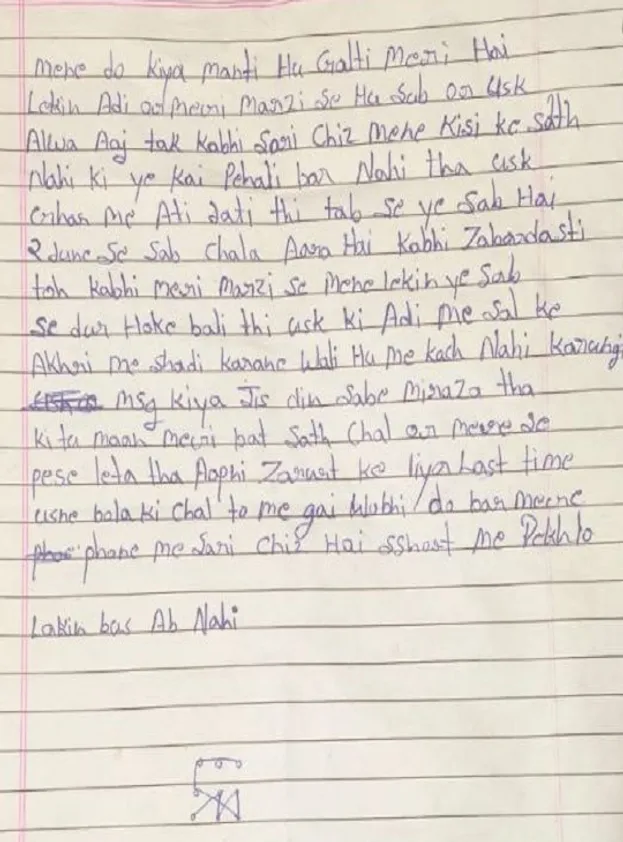 mene do kiya manti Hu Galti Meri Hai
Lekin Adi or meri Marzi Se Hu Sab or Usk
Alwa Aaj tak Kabhi Sari Chiz Mene Kisi ke Sath
Nahi Ki ye Kai Pehali bar Nahi tha usk
me Ati Jati thi tab Se ye Sab Hai
2 June Se Sab Chala Aara Hai Kabhi Zabardasti
toh Kabhi meri Marzi Se Mene lekin ye Sab
Se dur Hoke bali thi usk ki Adi Me Sal ke
Akhri me Shadi karane Wali Hu Me kach Nahi Karungi
msg kiya Jis din Sabe Miraza tha
ki tu maan meri bat Sath Chal or Mere Se
pese leta tha Aaphi Zarurt ke liya Last time
usne bola ki Chal to me gai Wobhi do bar Merne
phone me Sari Chiz Hai SShost Me Dekhlo
Lakin bas Ab Nahi